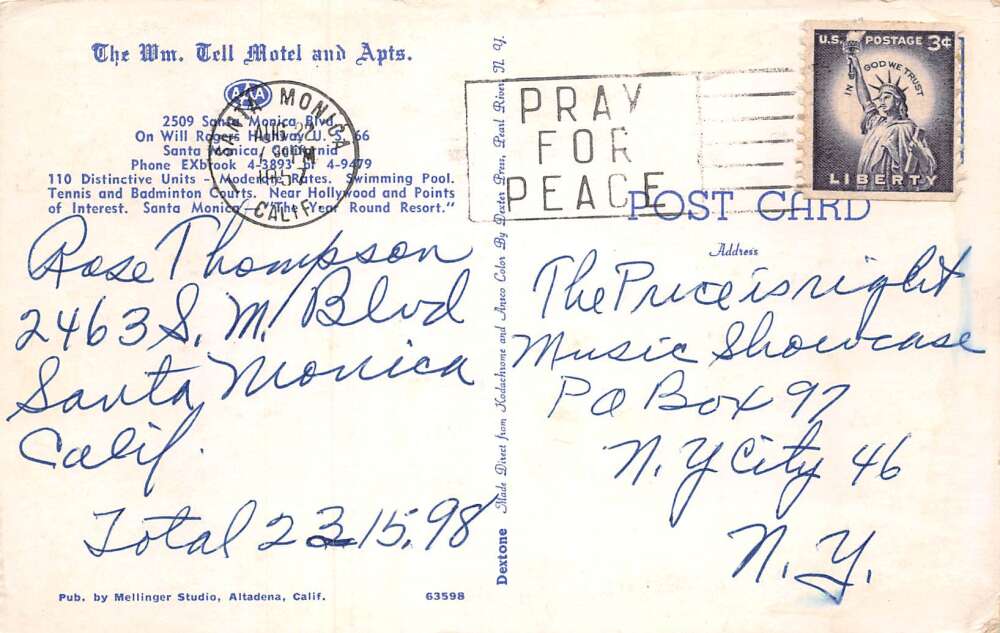 The Wm. Tell Motel and Apts.
AAA
2509 Santa Monica Blvd.
On Will Rogers Highway U.S. 66
Santa Monica, California
Phone EXbrook 4-3893 or 4-9479
110 Distinctive Units - Moderate Rates. Swimming Pool.
Tennis and Badminton Courts. Near Hollywood and Points
of Interest. Santa Monica - "The Year Round Resort."
SANTA MONICA
AUG 22
PM
1957
CALIF.
Rose Thompson
2463 S. M. Blvd
Santa Monica
Calif.
Total 2315.98
Pub. by Mellinger Studio, Altadena, Calif.
63598
Dextone Made Direct from Kodachrome and Ansco Color By Dexter Press, Pearl River, N. Y.
PRAY
FOR
PEACE
U.S. POSTAGE 3¢
IN GOD WE TRUST
LIBERTY
POST CARD
Address
The Price is right
Music Showcase
PO Box 97
N. Y City 46
N. Y.